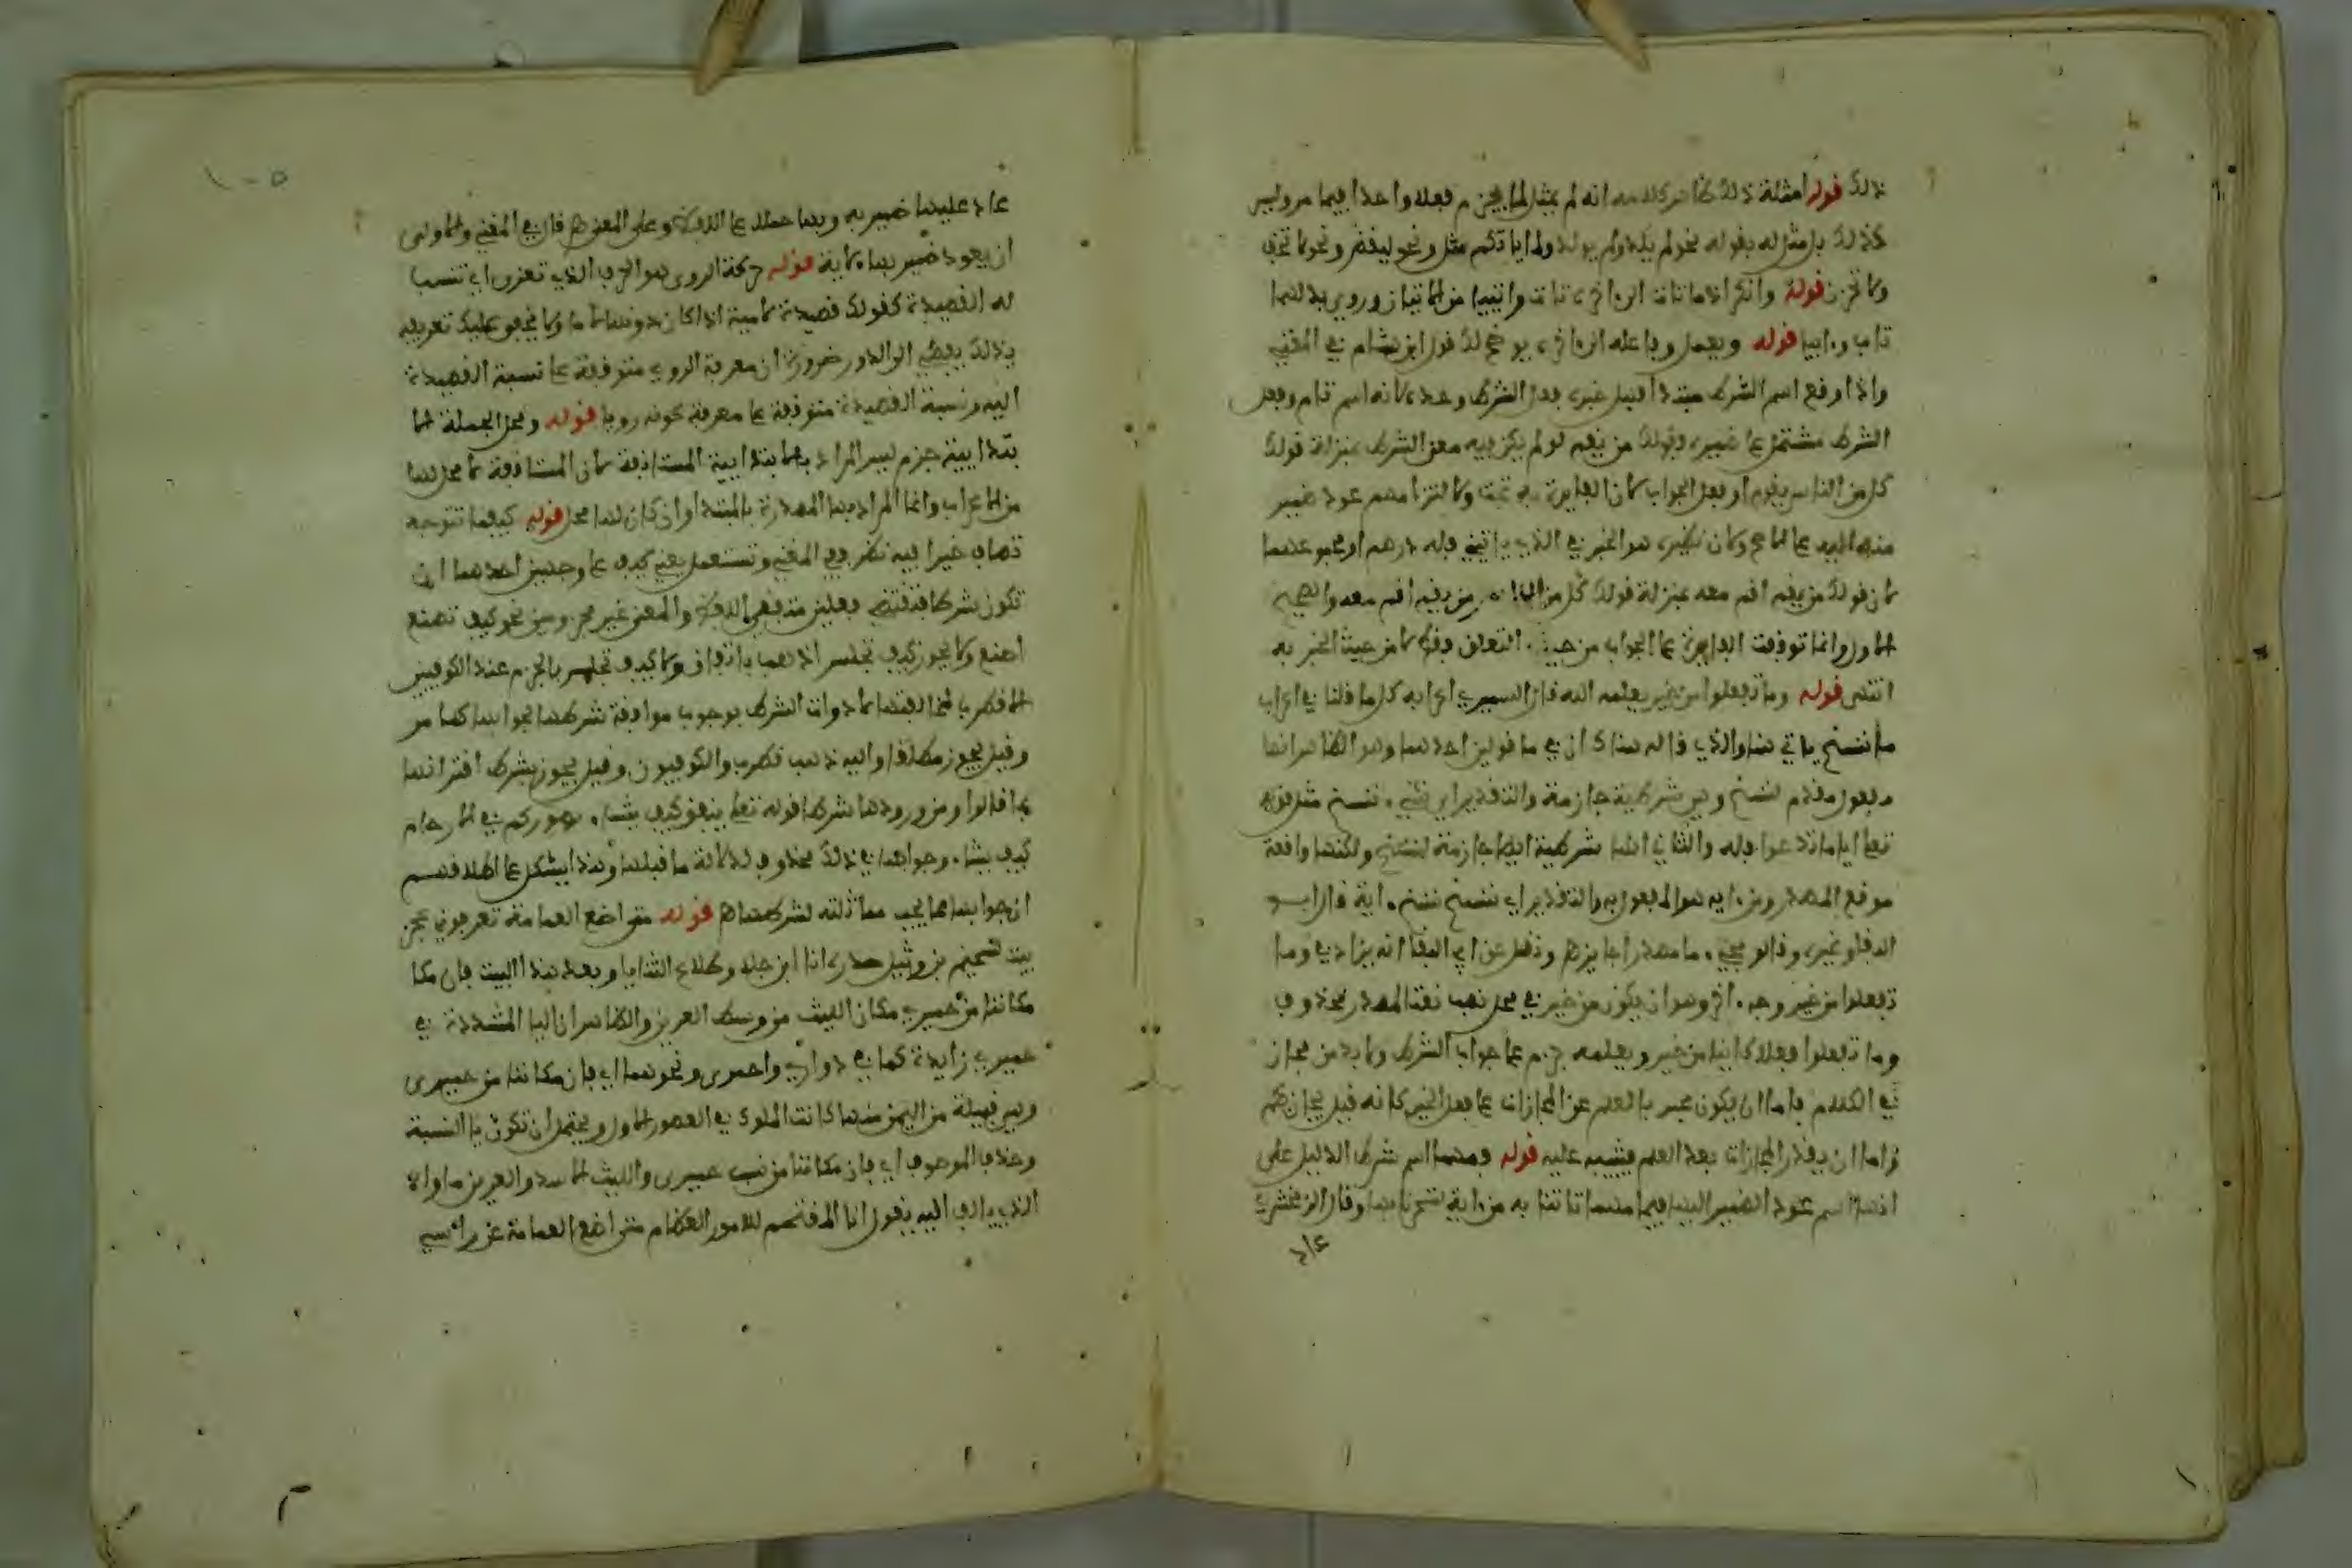 ذلك قوله امثلة ذلك ظاهر كلامه انه لم يمثل لما يجزم فعلا واحدا فيما مر وليس
كذلك بل مثل له بقوله نحو لم يلد ولم يولد ولما ياتكم مثل ونحو ليقض ونحو لا تخف
ولا تحزن قوله وانكر الاما تات الى اخره تات واتيا من الاتيان وروي بدلهما
تاب وابيا قوله ويعمل وما عله الى اخره يوضح لك قول ابن هشام في المغني
واذا وقع اسم الشرط مبتدا فهل خبره فعل الشرط وحده لانه اسم تام وفعل
الشرط مشتمل على ضميره فقولك من يقم لو لم يكن فيه معنى الشرط بمنزلة قولك
كل من الناس يقوم او فعل الجواب لان الفايدة به تمت ولالتزامهم عود ضمير
منه اليه على الاصح ولان نظيره هو الخبر في الذي ياتيني فله درهم او مجموعهما
لان قولك من يقم اقم معه بمنزلة قولك كل من الناس ان يقم اقم معه والصحيح
الاول وانما توقفت الفايدة على الجواب من حيث التعلق فقط لا من حيث الخبرية
انتهى قوله وما تفعلوا من خير يعلمه الله قال السمين اعرابه كل ما قلنا في اعراب
ما ننسخ ياتي هنا والذي قاله هناك ان في ما قولين احدهما وهو الظاهر انها
مفعول مقدم لننسخ وهي شرطية جازمة والتقدير اي شيء ننسخ مثل قوله
تعلى ايا ما تدعوا فله والثاني انها شرطية ايضا جازمة لننسخ ولكنها واقعة
موقع المصدر ومن اية هو المفعول به والتقدير اي نسخ ننسخ اية قال ابو
البقا وغيره وقالوا مجيء ما مصدرا جايز هـ ونقل عن ابي البقا انه يزاد في وما
تفعلوا من خير وجه اخر وهو ان يكون من خير في محل نصب نعتا لمصدر محذوف
وما تفعلوا فعلا كاينا من خير ويعلمه جزم على جواب الشرط ولا بد من مجاز
في الكلام فاما ان يكون عبر بالعلم عن المجازات على فعل الخير كانه قيل يجازيكم
واما ان يقدر المجازات بعد العلم فيثيبه عليه قوله ومهما اسم شرط الدليل على
انها اسم عود الضمير اليها فيما مهما تاتنا به من اية لتسحرنا بها وقال الزمخشري
عاد
١٠٥
عاد عليها ضمير به وبها حملا على اللفظ وعلى المعنى هـ قال في المغني والاولى
ان يعود ضمير بها لاية قوله حركة الروي هو الحرف الذي تعزى اي تنسب
له القصيدة كقولك قصيدة لامية اذا كان رويها لاما ولا يخفى عليك تعريفه
بذلك يفضي الى الدور ضرورة ان معرفة الروي متوقفة على نسبة القصيدة
اليه ونسبة القصيدة متوقفة على معرفة كونه رويا قوله ومحل الجملة الا
بتدايية جزم ليس المراد بالابتدايية المستانفة لان المستانفة لا محل لها
من الاعراب وانما المراد بها المصدرة بالمبتدا وان كان لها محل قوله كيفما تتوجه
تصادف خيرا فيه نظر ففي المغني وتستعمل يعني كيف على وجهين احدهما ان
تكون شرطا فتقتضي فعلين متفقي اللفظ والمعنى غير مجزومين نحو كيف تصنع
اصنع ولا يجوز كيف تجلس اذهب باتفاق ولا كيف تجلس بالجزم عند الكوفيين
الا قطرب لمخالفتها لادوات الشرط بوجوب موافقة شرطها لجوابها كما مر
وقيل يجوز مطلقا واليه ذهب قطرب والكوفيون وقيل يجوز بشرط اقترانها
بما قالوا ومن ورودها شرطا قوله تعلى ينفق كيف يشاء يصوركم في الارحام
كيف يشاء وجوابها في ذلك محذوف لدلالة ما قبلها وهذا يشكل على اطلاقهم
ان جوابها يجب مماثلته لشرطها هـ قوله متى اضع العمامة تعرفوني عجز
بيت لسحيم بن وثيل صدره انا ابن جلا وطلاع الثنايا وبعد هذا البيت فان مكا
مكاننا من حميري مكان الليث من وسط العرين والظاهر ان اليا المشددة في
حميري زايدة كما في دواري واحمري ونحوهما اي فان مكاننا من حميري
وهي قبيلة من اليمن منها كانت الملوك في العصور الاول ويحتمل ان تكون يا النسبة
وحذف الموصوف اي فان مكاننا من نسب حميري والليث الاسد والعرين ماواه
الذي يالف اليه يقول انا المقتحم للامور العظام متى اضع العمامة عن راسي